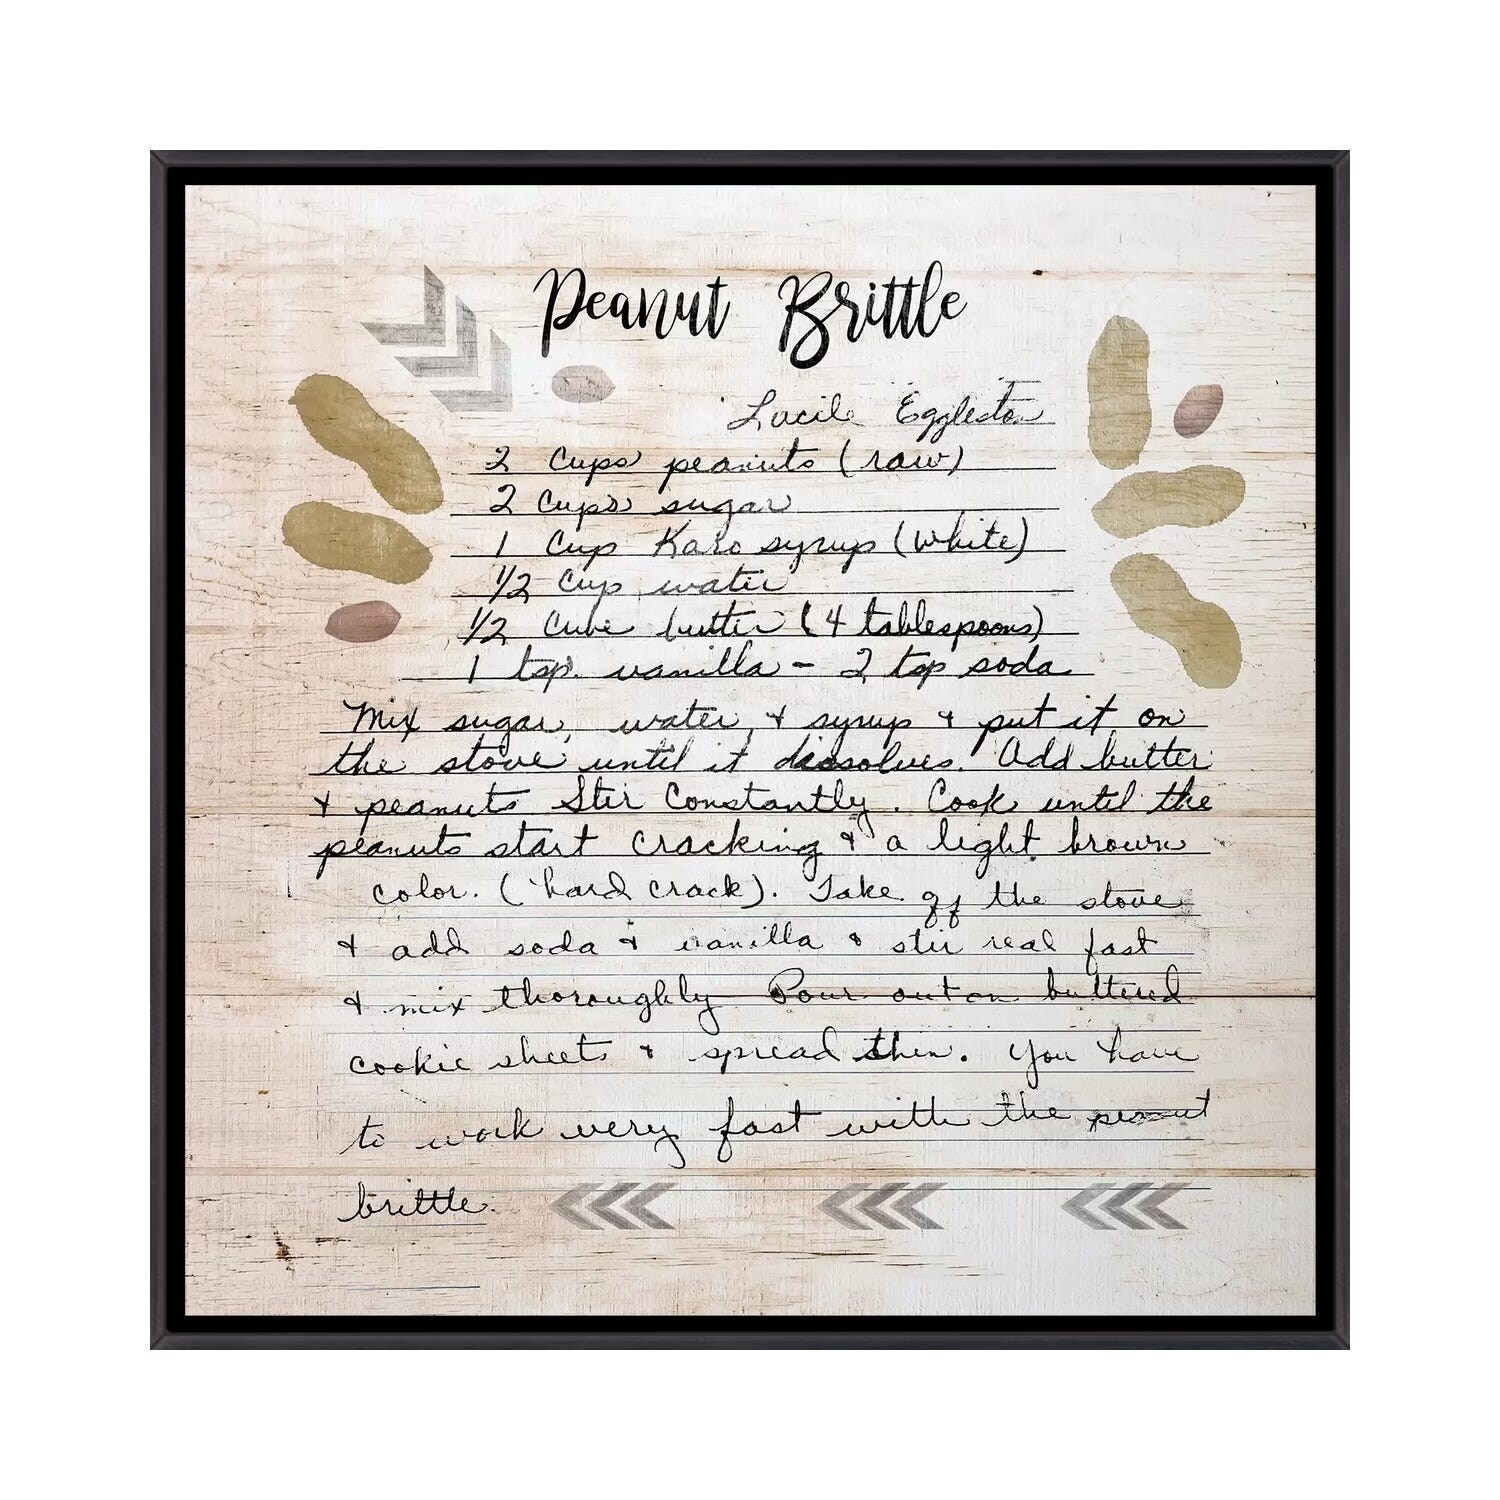 Peanut Brittle
Lucile Eggleston
2 Cups peanuts (raw)
2 Cups sugar
1 Cup Karo syrup (white)
1/2 Cup water
1/2 Cube butter (4 tablespoons)
1 tsp. vanilla - 2 tsp soda
Mix sugar, water, & syrup & put it on
the stove until it dissolves. Add butter
& peanuts Stir Constantly. Cook until the
peanuts start Cracking & a light brown
color. (hard crack). Take off the stove
& add soda & vanilla & stir real fast
& mix thoroughly Pour out on buttered
cookie sheets & spread thin. You have
to work very fast with the peanut
brittle.